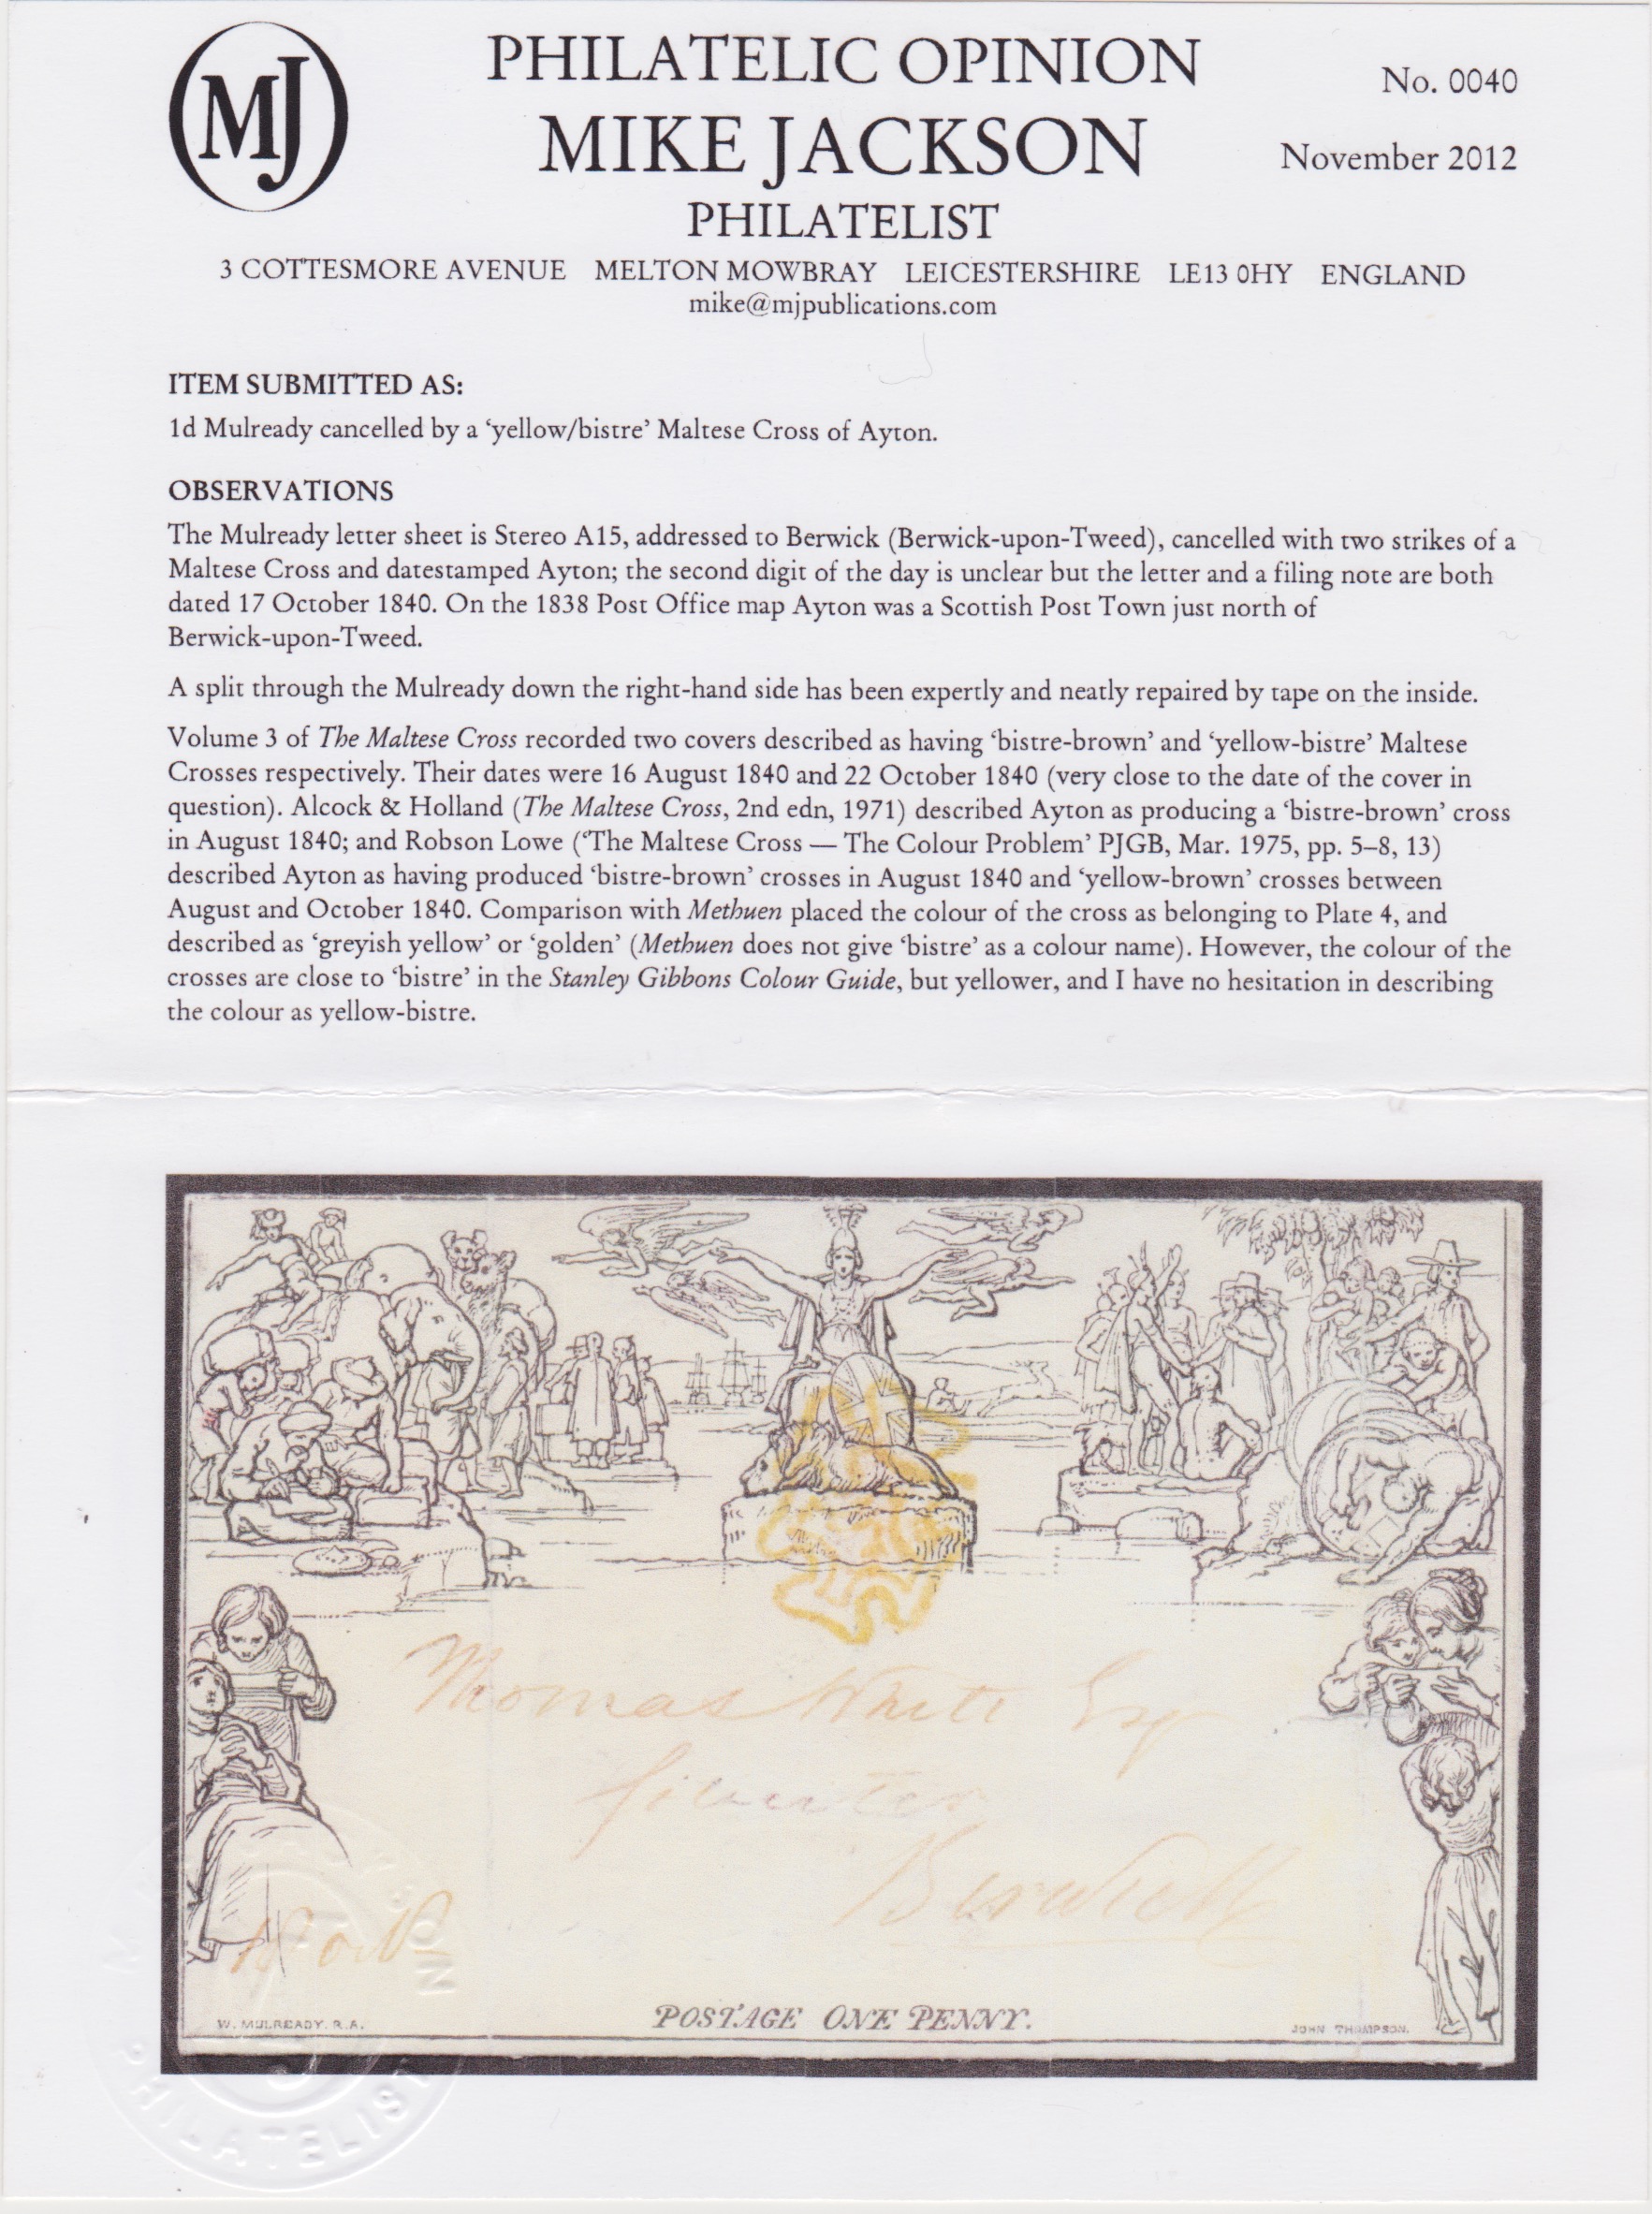 MJ
PHILATELIC OPINION
MIKE JACKSON
PHILATELIST
No. 0040
November 2012
3 COTTESMORE AVENUE MELTON MOWBRAY LEICESTERSHIRE LE13 0HY ENGLAND
mike@mjpublications.com
ITEM SUBMITTED AS:
1d Mulready cancelled by a ‘yellow/bistre’ Maltese Cross of Ayton.
OBSERVATIONS
The Mulready letter sheet is Stereo A15, addressed to Berwick (Berwick-upon-Tweed), cancelled with two strikes of a
Maltese Cross and datestamped Ayton; the second digit of the day is unclear but the letter and a filing note are both
dated 17 October 1840. On the 1838 Post Office map Ayton was a Scottish Post Town just north of
Berwick-upon-Tweed.
A split through the Mulready down the right-hand side has been expertly and neatly repaired by tape on the inside.
Volume 3 of The Maltese Cross recorded two covers described as having ‘bistre-brown’ and ‘yellow-bistre’ Maltese
Crosses respectively. Their dates were 16 August 1840 and 22 October 1840 (very close to the date of the cover in
question). Alcock & Holland (The Maltese Cross, 2nd edn, 1971) described Ayton as producing a ‘bistre-brown’ cross
in August 1840; and Robson Lowe (‘The Maltese Cross — The Colour Problem’ PJGB, Mar. 1975, pp. 5–8, 13)
described Ayton as having produced ‘bistre-brown’ crosses in August 1840 and ‘yellow-brown’ crosses between
August and October 1840. Comparison with Methuen placed the colour of the cross as belonging to Plate 4, and
described as ‘greyish yellow’ or ‘golden’ (Methuen does not give ‘bistre’ as a colour name). However, the colour of the
crosses are close to ‘bistre’ in the Stanley Gibbons Colour Guide, but yellower, and I have no hesitation in describing
the colour as yellow-bistre.
Thomas White Esq
Berwick
POSTAGE ONE PENNY.
W. MULREADY. R.A.
JOHN THOMPSON.
PHILATELIST